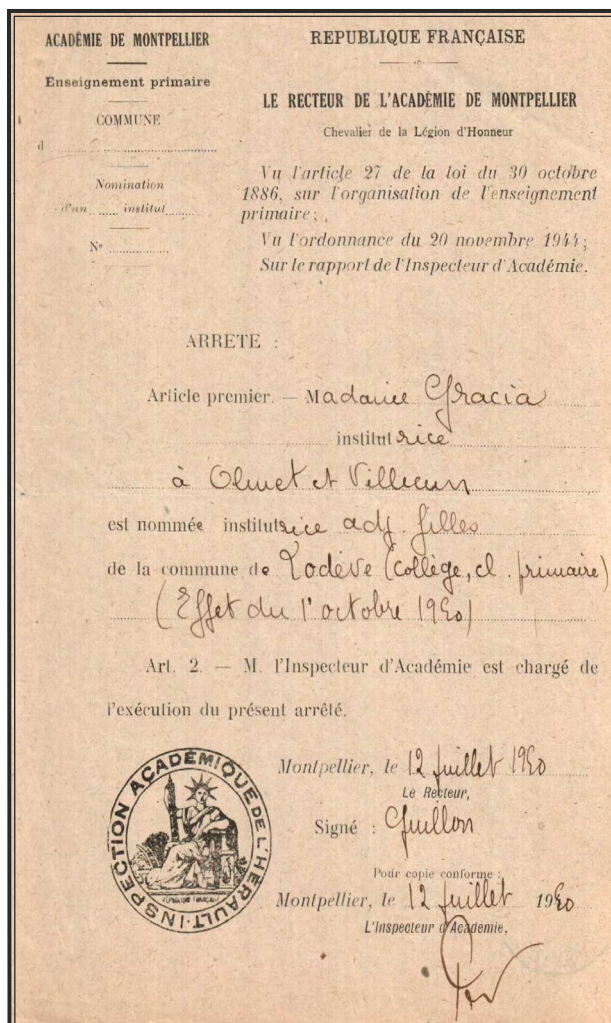 ACADÉMIE DE MONTPELLIER
Enseignement primaire
COMMUNE
d
Nomination
d'un ...... institut
N°
REPUBLIQUE FRANÇAISE
LE RECTEUR DE L'ACADÉMIE DE MONTPELLIER
Chevalier de la Légion d'Honneur
Vu l'article 27 de la loi du 30 octobre
1886, sur l'organisation de l'enseignement
primaire;
Vu l'ordonnance du 20 novembre 1944;
Sur le rapport de l'Inspecteur d'Académie.
ARRETE :
Article premier. — Madame Gracia
institutrice
à Olmet et Villecun
est nommée institutrice adj. filles
de la commune de Lodève (collège, cl. primaire)
(Effet du 1er octobre 1950)
Art. 2. — M. l'Inspecteur d'Académie est chargé de
l'exécution du présent arrêté.
Montpellier, le 12 juillet 1950
Le Recteur,
Signé : Guillon
Pour copie conforme :
Montpellier, le 12 juillet 1950
L'Inspecteur d'Academie,
INSPECTION ACADÉMIQUE DE L'HÉRAULT
RÉPUBLIQUE FRANÇAISE